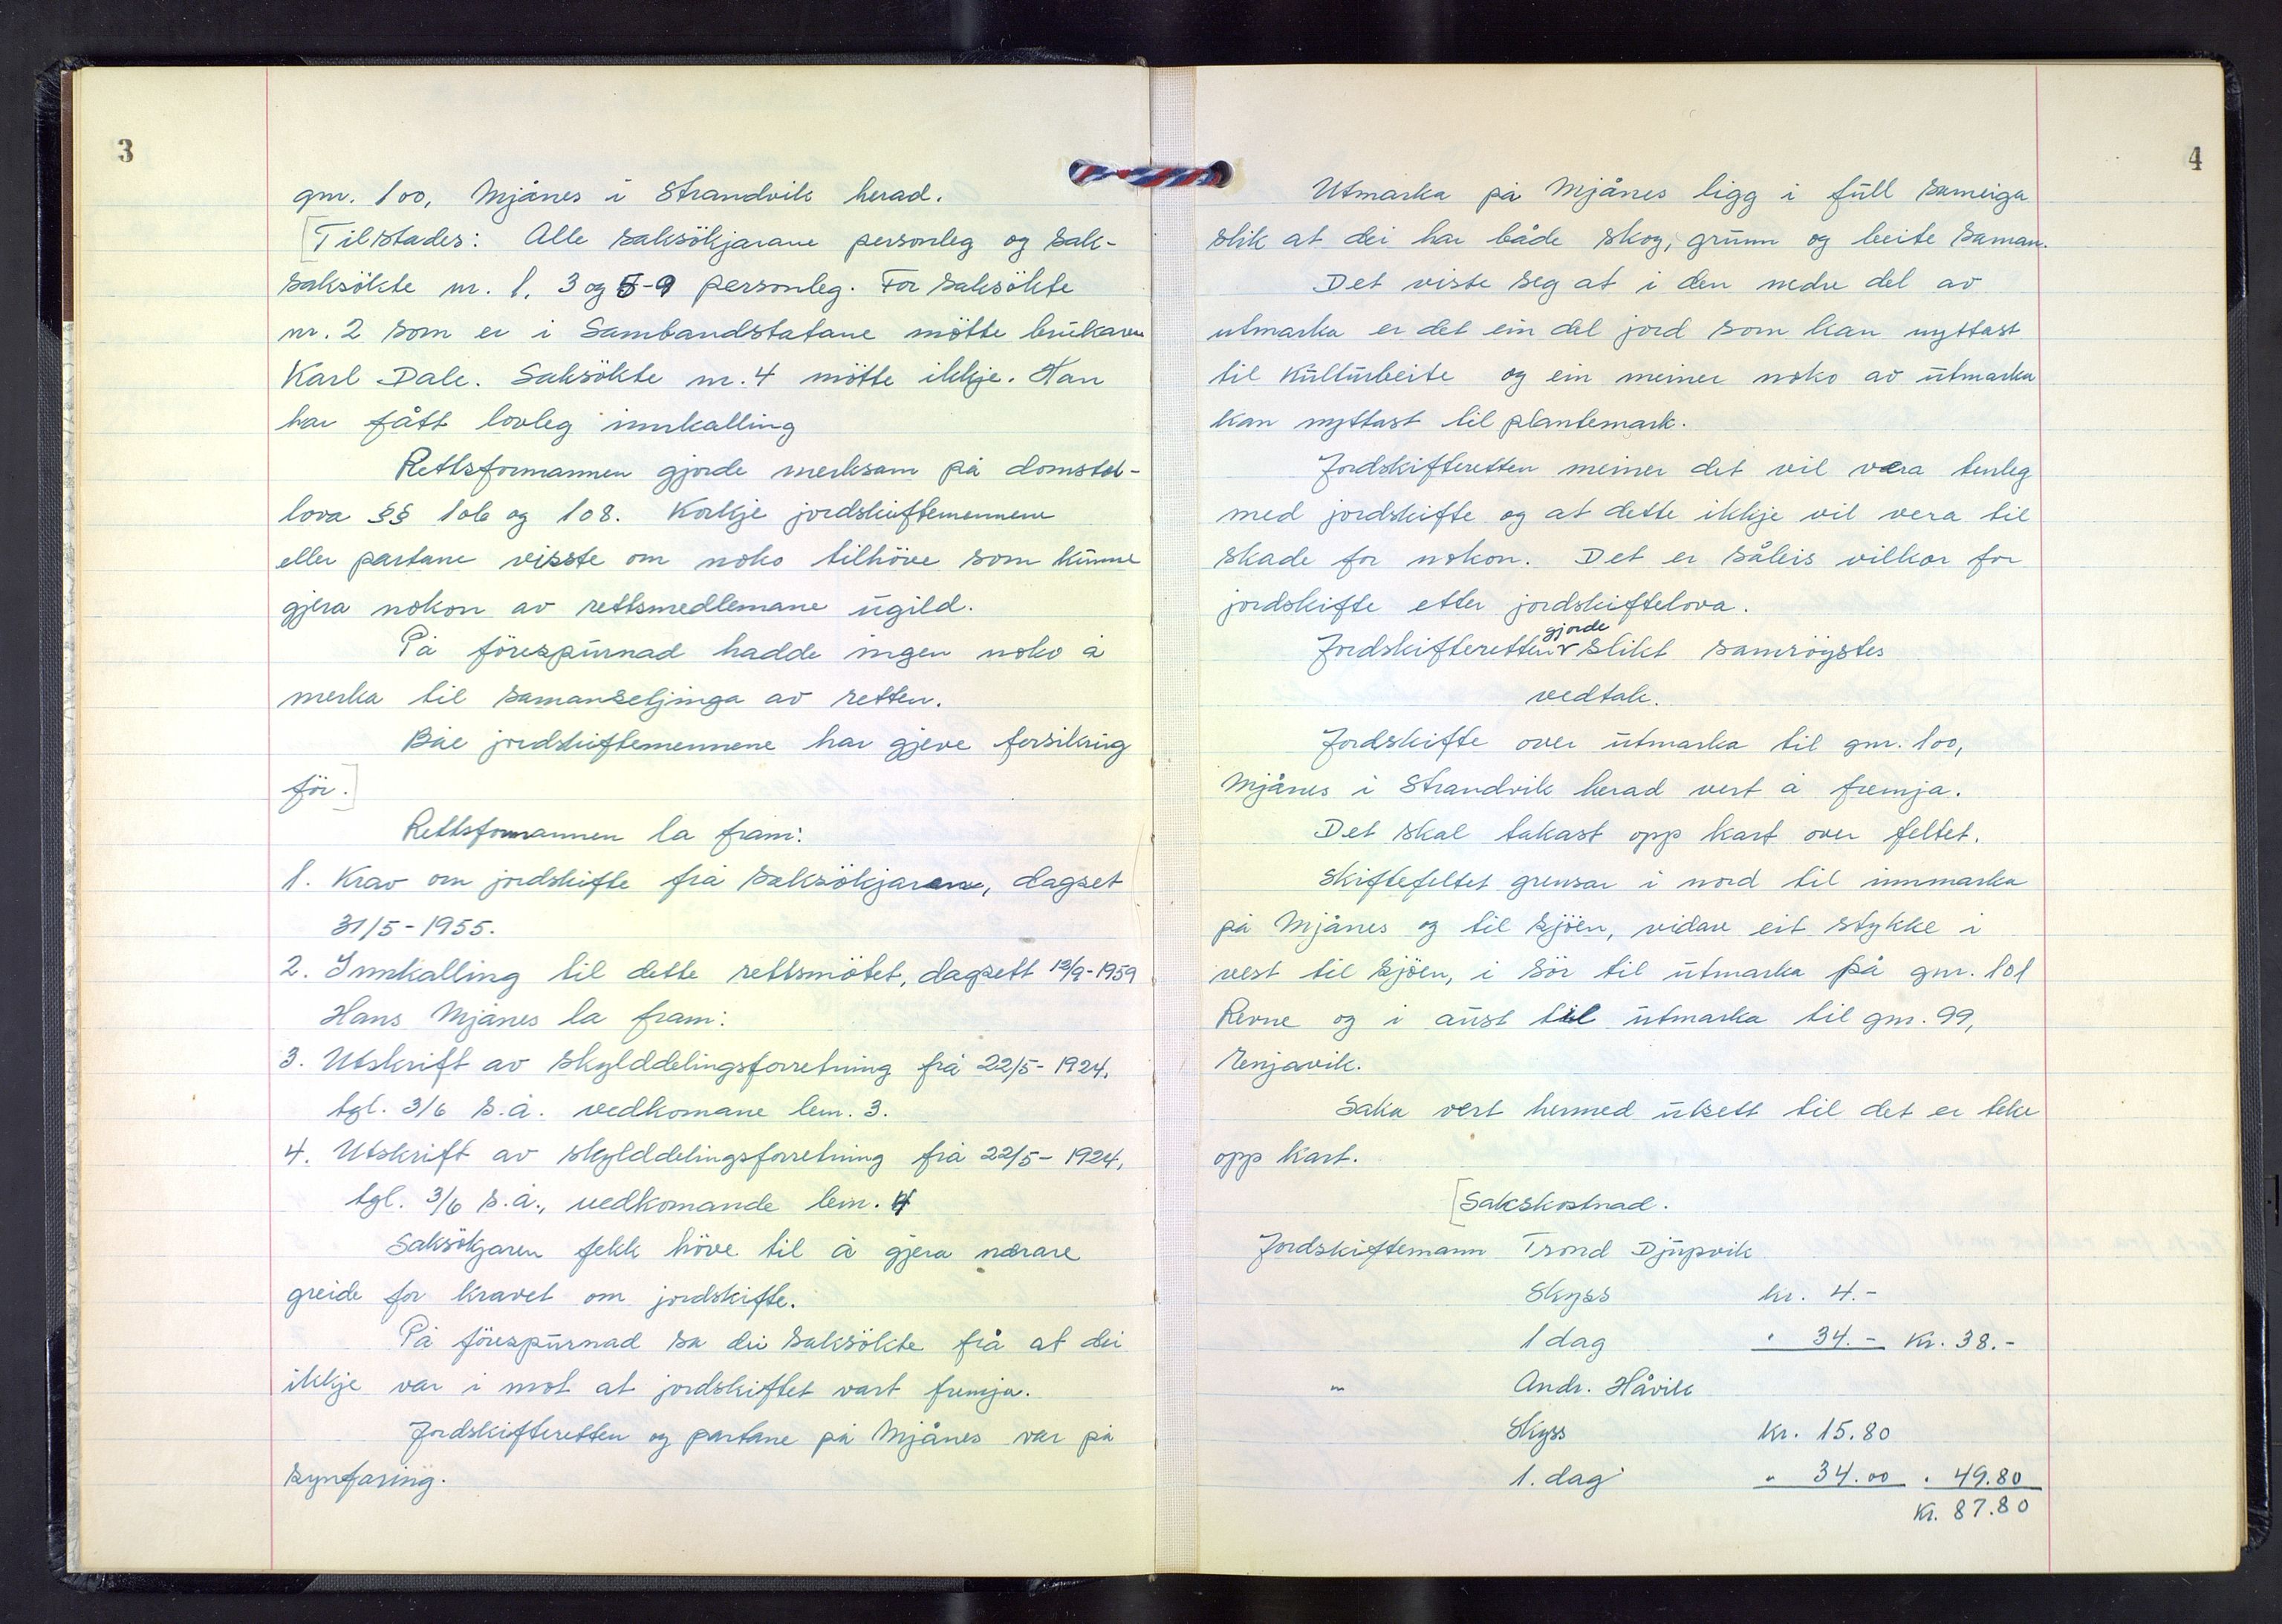 3
gnr. 100, Mjånes i Strandvik herad.
[Tilstades: Alle saksökjarane personleg og sak-
saksökte nr. 1, 3 og 5-9 personleg. For saksökte
nr. 2 som er i Sambandstatane mötte brukaren
Karl Dale. Saksökte nr. 4 mötte ikkje. Han
har fått lovleg innkalling
Rettsformannen gjorde merksam på domstol-
lova §§ 106 og 108. Korkje jordskiftemennene
eller partane visste om noko tilhöve som kunne
gjera nokon av rettsmedlemane ugild.
På förespurnad hadde ingen noko å
merka til samansetjinga av retten.
Båe jordskiftemennene har gjeve forsikring
för.]
Rettsformannen la fram:
1. Krav om jordskifte frå saksökjarane, dagset
31/5-1955.
2. Innkalling til dette rettsmötet, dagsett 13/9-1959
Hans Mjånes la fram:
3. Utskrift av skylddelingsforretning frå 22/5-1924,
tgl. 3/6 s.å. vedkomane lem. 3.
4. Utskrift av skylddelingsforretning frå 22/5-1924,
tgl. 3/6 s.å., vedkomande lem. 4
Saksökjaren fekk höve til å gjera nærare
greide for kravet om jordskifte.
På förespurnad sa dei saksökte frå at dei
ikkje var i mot at jordskiftet vart fremja.
Jordskifteretten og partane på Mjånes var på
synfaring.
4
Utmarka på Mjånes ligg i full sameiga
slik at dei har både skog, grunn og beite saman.
Det viste seg at i den nedre del av
utmarka er det ein del jord som kan nyttast
til kulturbeite og ein meiner noko av utmarka
kan nyttast til plantemark.
Jordskifteretten meiner det vil vera tenleg
med jordskifte og at dette ikkje vil vera til
skade for nokon. Det er såleis vilkor for
jordskifte etter jordskiftelova.
gjorde
Jordskifteretten v slikt samröystes
vedtak.
Jordskifte over utmarka til gnr. 100,
Mjånes i Strandvik herad vert å fremja.
Det skal takast opp kart over feltet.
Skiftefeltet grensar i nord til innmarka
på Mjånes og til sjöen, vidare eit stykke i
vest til sjöen, i sör til utmarka på gnr. 101
Revne og i aust til utmarka til gnr. 99,
Renjavik.
Saka vert hermed utsett til det er teke
opp kart.
[Sakskostnad.
Jordskiftemann Trond Djupvik
Skyss kr. 4.-
1 dag " 34.- Kr. 38.-
" Andr. Håvik
Skyss Kr. 15.80
1. dag " 34.00 " 49.80
Kr. 87.80